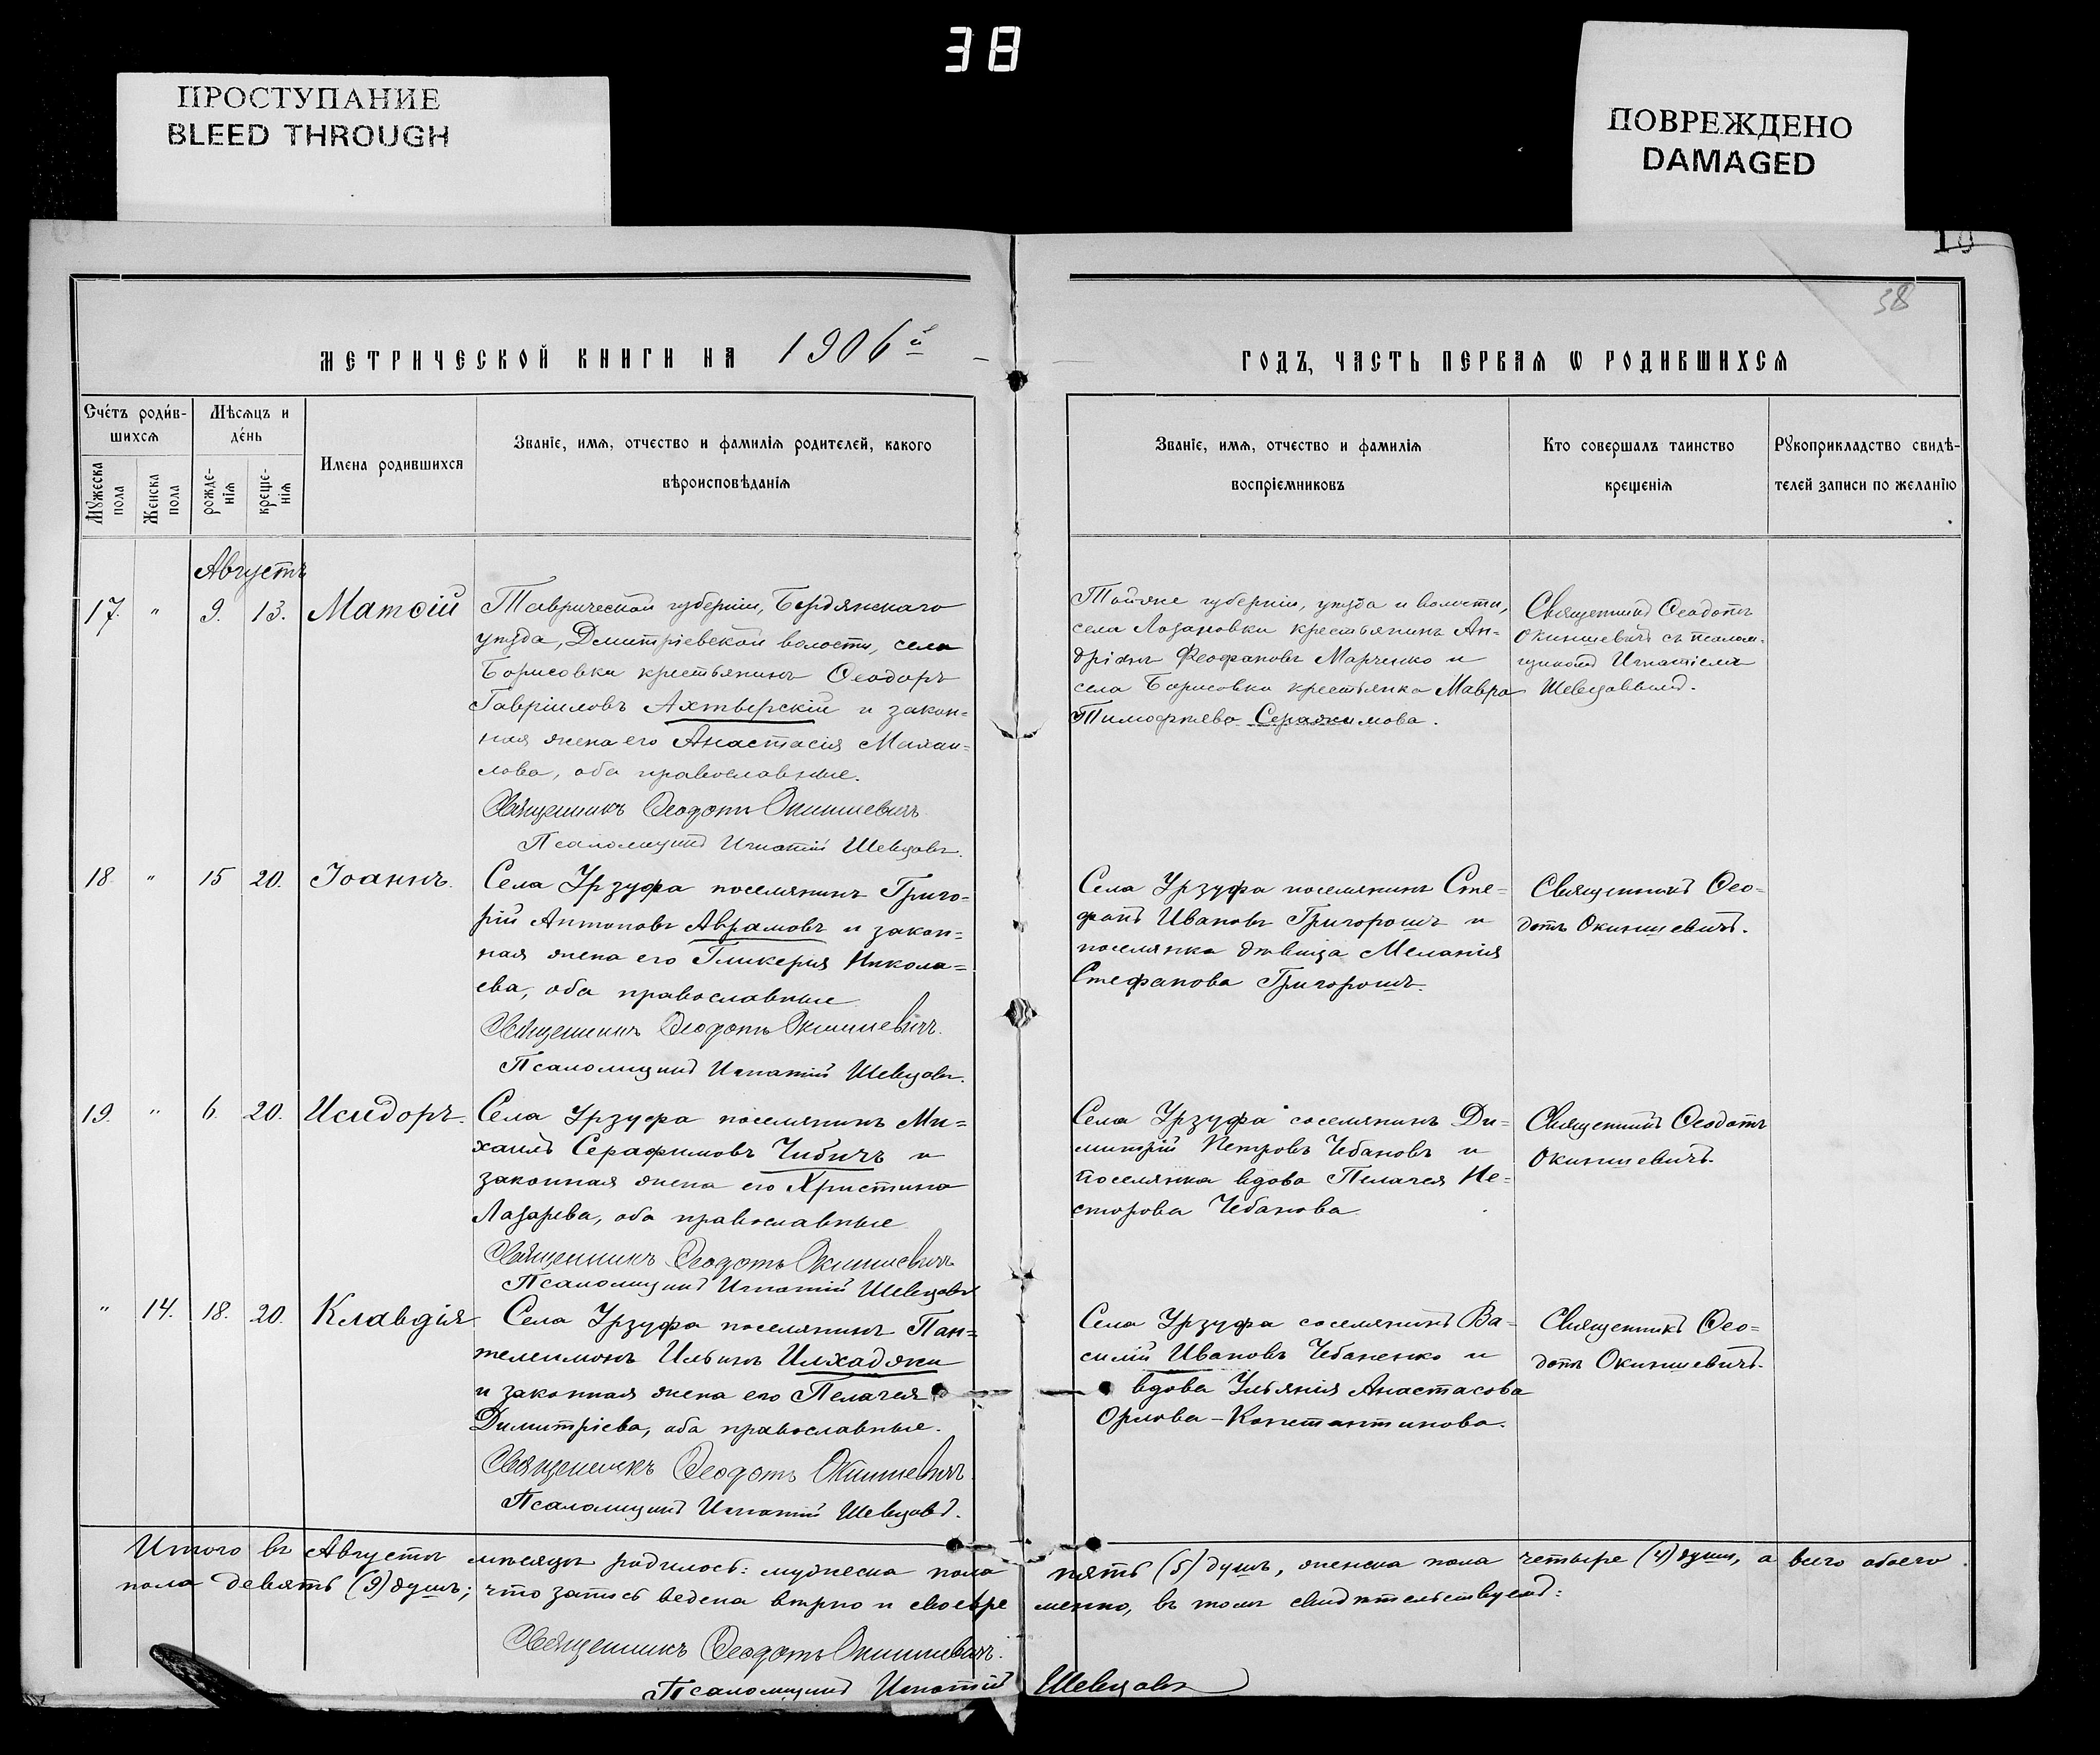 38
ПРОСТУПАНИЕ
BLEED THROUGH
ПОВРЕЖДЕНО
DAMAGED
10
38
МЕТРИЧЕСКОЙ КНИГИ НА 1906й
ГОДЪ, ЧАСТЬ ПЕРВАѦ Ѡ РОДИВШИХСѦ
Счéтъ роди́в-
шихсѧ
Мѣсѧцъ и
де́нь
Мꙋжеска
пола
Женска
пола
рожде-
нїѧ
креще-
нїѧ
Имена родившихсѧ
Званїе, имѧ, отчество и фамилїѧ родителей, какого
вѣроисповѣданїѧ
Званїе, имѧ, отчество и фамилїѧ
воспрїемниковъ
Кто совершалъ таинство
крещенїѧ
Рꙋкоприкладство свидѣ-
телей записи по желанїю
Августъ
17. " 9. 13. Матѳій
Таврической губерніи, Бердянскаго
уѣзда, Дмитріевской волости, села
Борисовки крестьянинъ Ѳеодоръ
Гавріиловъ Ахтырскій и закон=
ная жена его Анастасія
лова, оба православные.
Священникъ Ѳеодотъ Окиншевичъ
Псаломщикъ Игнатій Шевцовъ.
Тойже губерніи, уѣзда и волости,
села Лозановки крестьянинъ Ан=
дріанъ Феофановъ Марченко и
села Борисовки крестьянка Мавра
Тимофѣева Серажимова.
Священникъ Ѳеодотъ
Окиншевичъ съ псалом-
щикомъ Игнатіемъ
Шевцовымъ.
18. " 15 20. Іоаннъ.
Села Урзуфа поселянинъ Григо=
рій Антоновъ Аврамовъ и закон=
ная жена его Гликерія Никола=
ева, оба православные
Священникъ Ѳеодотъ Окиншевичъ.
Псаломщикъ Игнатій Шевцовъ.
Села Урзуфа поселянинъ Сте=
фанъ Ивановъ Григорошъ и
поселянка дѣвица Меланія
Стефанова Григорошъ.
Священникъ Ѳео=
дотъ Окиншевичъ.
19. " 6. 20. Исидоръ.
Села Урзуфа поселянинъ Ми=
хаилъ Серафимовъ Чибичъ и
законная жена его Христина
Лазарева, оба православные
Священникъ Ѳеодотъ Окиншевичъ
Псаломщикъ Игнатій Шевцовъ
Села Урзуфа поселянинъ Ди=
митрій Петровъ Чебановъ и
поселянка вдова Пелагея Не=
сторова Чебанова
Священникъ Ѳеодотъ
Окиншевичъ.
" 14. 18. 20. Клавдія
Села Урзуфа поселянинъ Пан=
телеимонъ Ильинъ Илхаджи
и законная жена его Пелагея
Димитріева, оба православные.
Священникъ Ѳеодотъ Окиншевичъ
Псаломщикъ Игнатій Шевцовъ.
Села Урзуфа поселянинъ Ва=
силій Ивановъ Чебаненко и
вдова Ульянія Анастасова
Орлова-Константинова.
Священникъ Ѳео=
дотъ Окиншевичъ.
Итого въ Августѣ мѣсяцѣ родилось: мужеска пола пять (5) душъ, женска пола четыре (4) души, а всего обоего
пола девять (9) душъ; что запись ведена вѣрно и своевре менно, въ томъ свидѣтельствуемъ:
Священникъ Ѳеодотъ Окиншевичъ.
Псаломщикъ Игнатій Шевцовъ